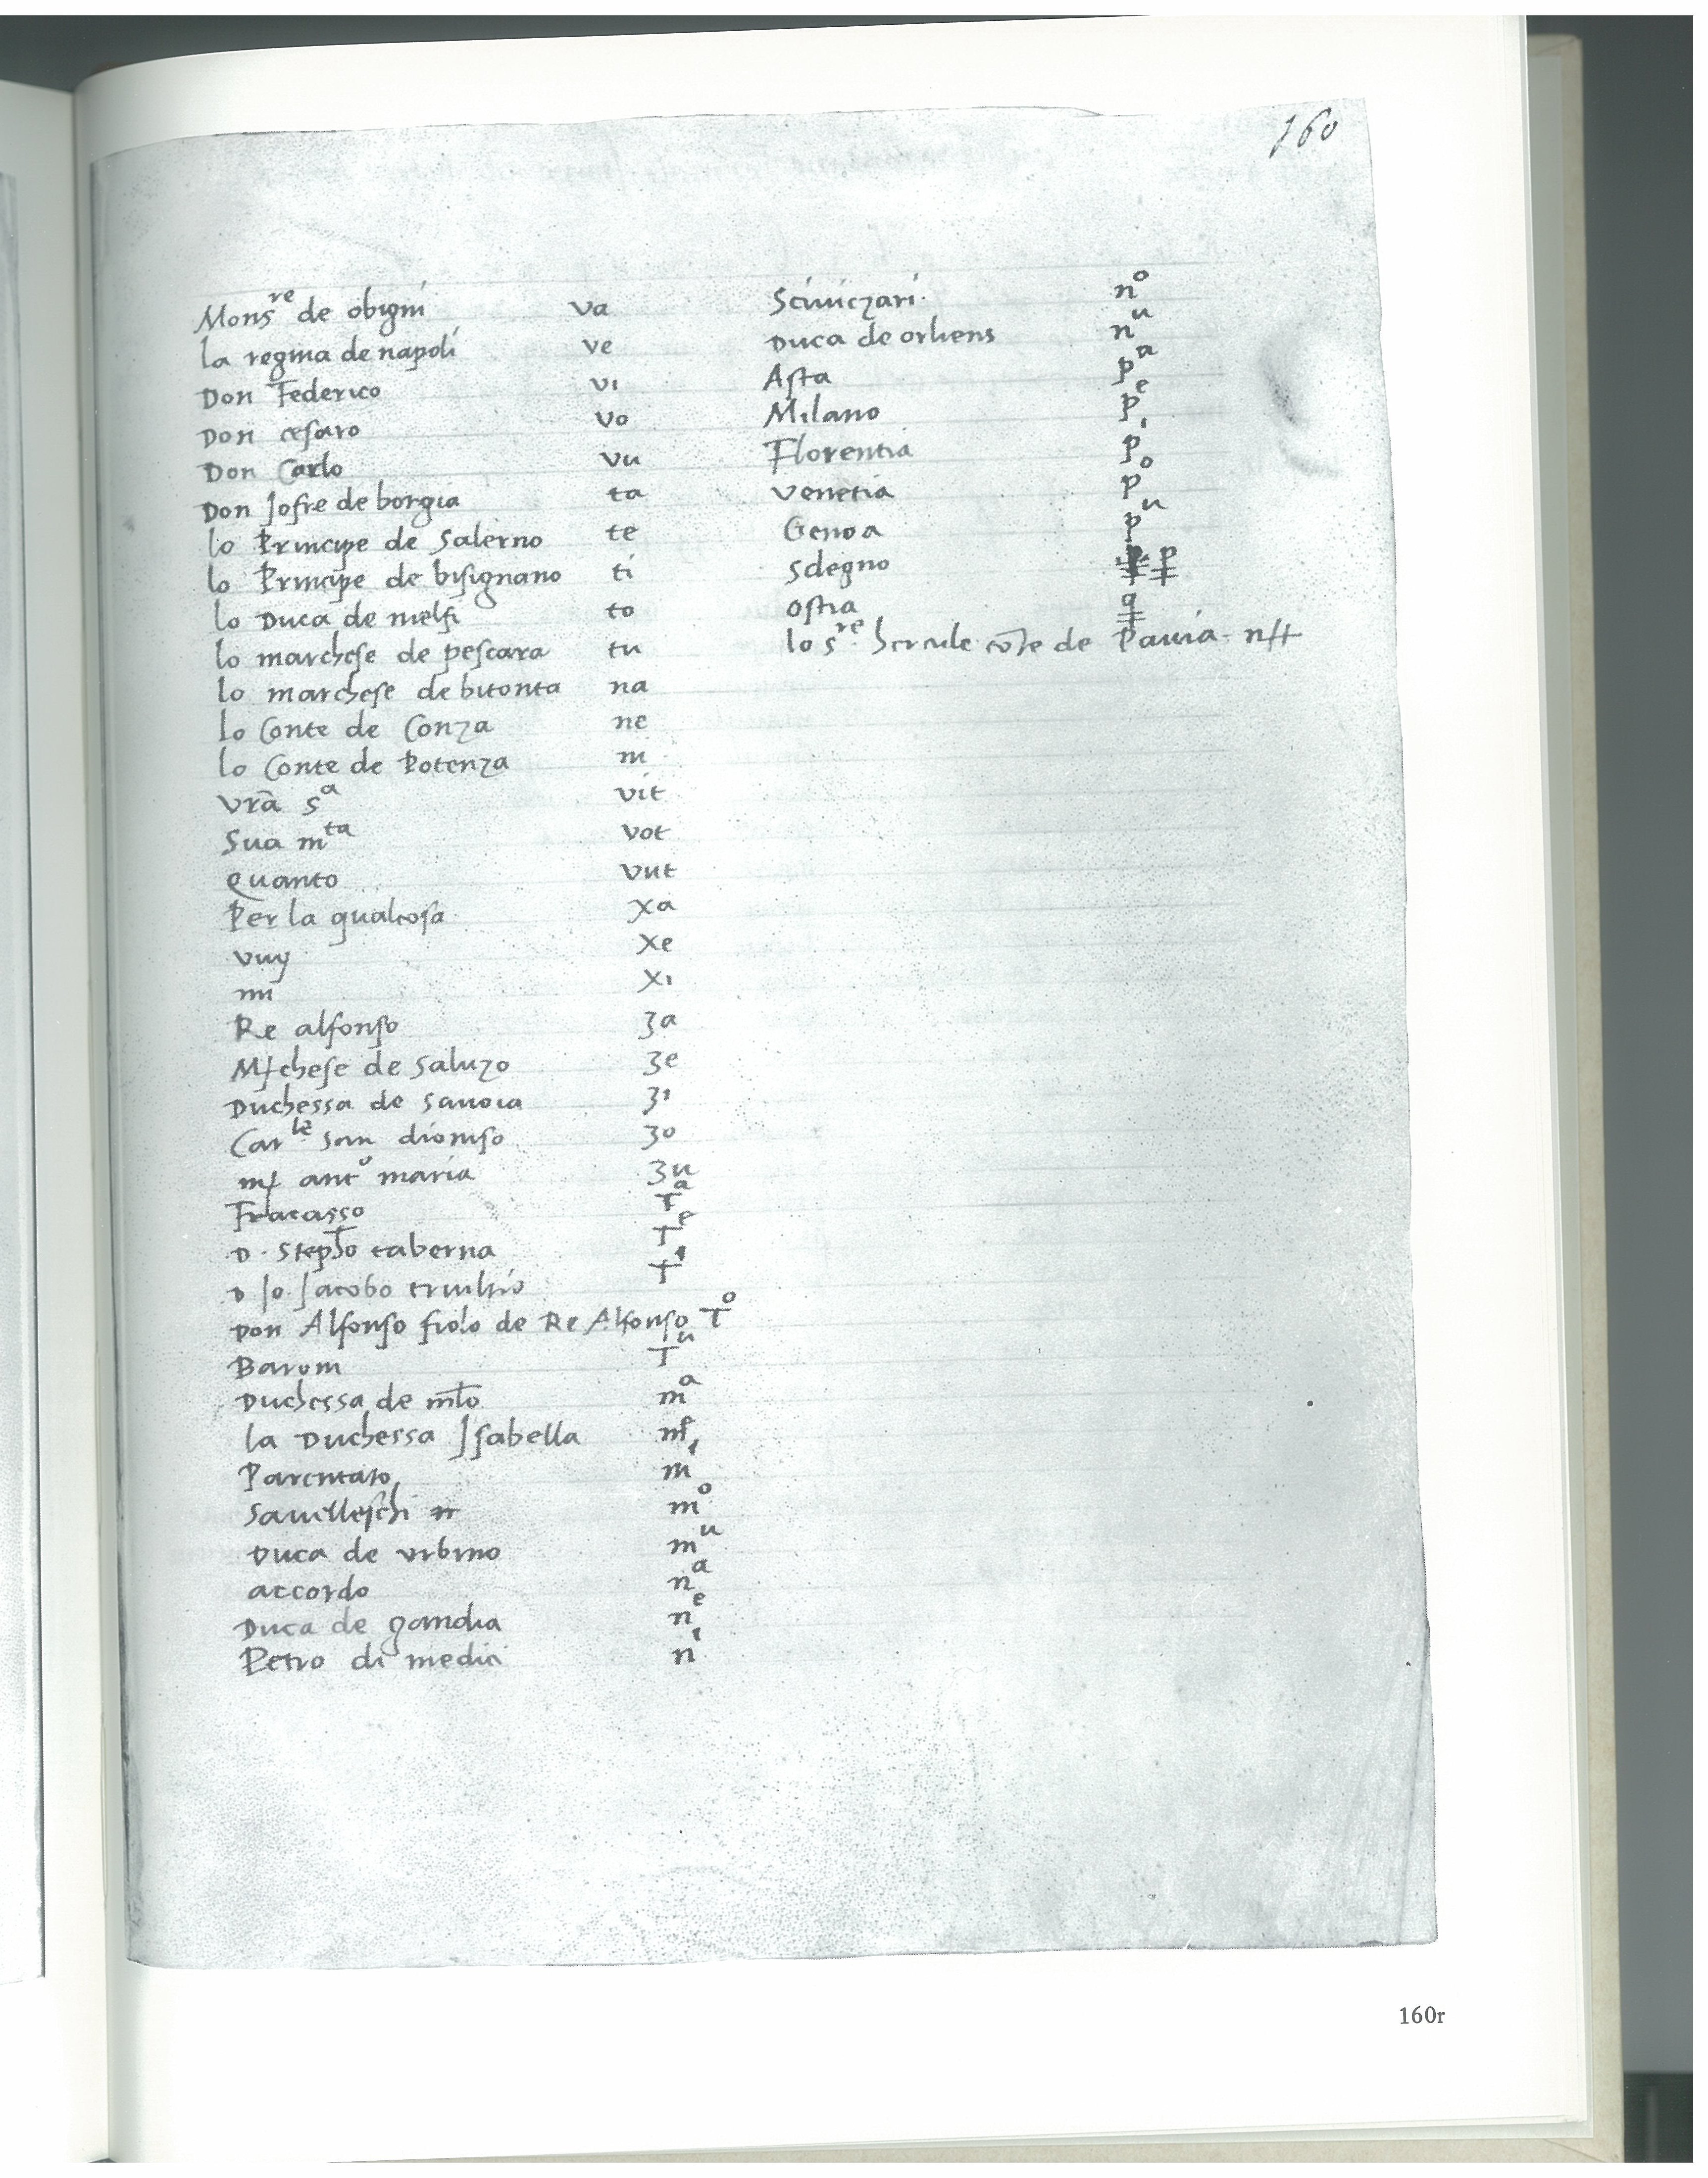 160
Mons^re de obigni va
la regina de napoli ve
Don Federico vi
Don cesaro vo
Don Carlo vu
Don Jofre de borgia ta
lo Principe de Salerno te
lo Principe de bisignano ti
lo Duca de melfi to
lo marchese de pescara tu
lo marchese de bitonta na
lo Conte de Conza ne
lo Conte de Potenza ni
Vrā s^a vit
Sua m^ta vot
Quanto vut
Per la qualcosa xa
vuy xe
nui xi
Re alfonso 3a
M chese de Saluzo 3e
Duchessa de Sauoia 3i
Car^le san dioniso 3o
ant^o maria 3u
Fracasso T^a
D. Steph̄o taberna T^e
D Jo. Jacobo triultio T^i
Don Alfonso fiolo de Re Alfonso T^o
Baroni T^u
Duchessa de ml̄o m^a
la Duchessa Isabella m^e
Parentato m^i
Sauelleschi m^o
Duca de vrbino m^u
accordo n^a
Duca de gandia n^e
Petro di medici n^i
Sciuiczari n^o
Duca de orliens n^u
Asta p^a
Milano p^e
Florentia p^i
Venetia p^o
Genoa p^u
Sdegno
Ostia
lo s^re hercule cōte de Pauia
160r